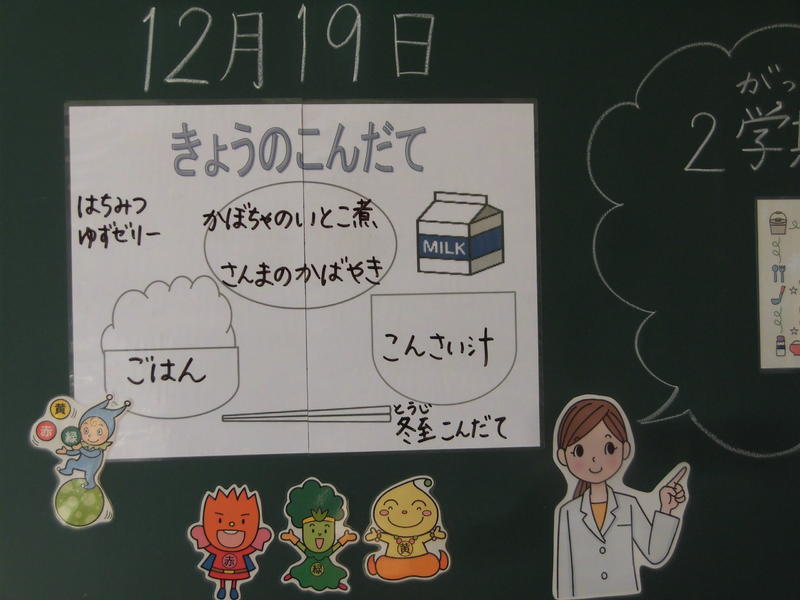 12月19日
きょうのこんだて
はちみつ
ゆずゼリー
かぼちゃのいとこ煮
さんまのかばやき
MILK
ごはん
こんさい汁
とうじ
冬至こんだて
黄
赤
緑
赤
緑
黄
がっ
2学